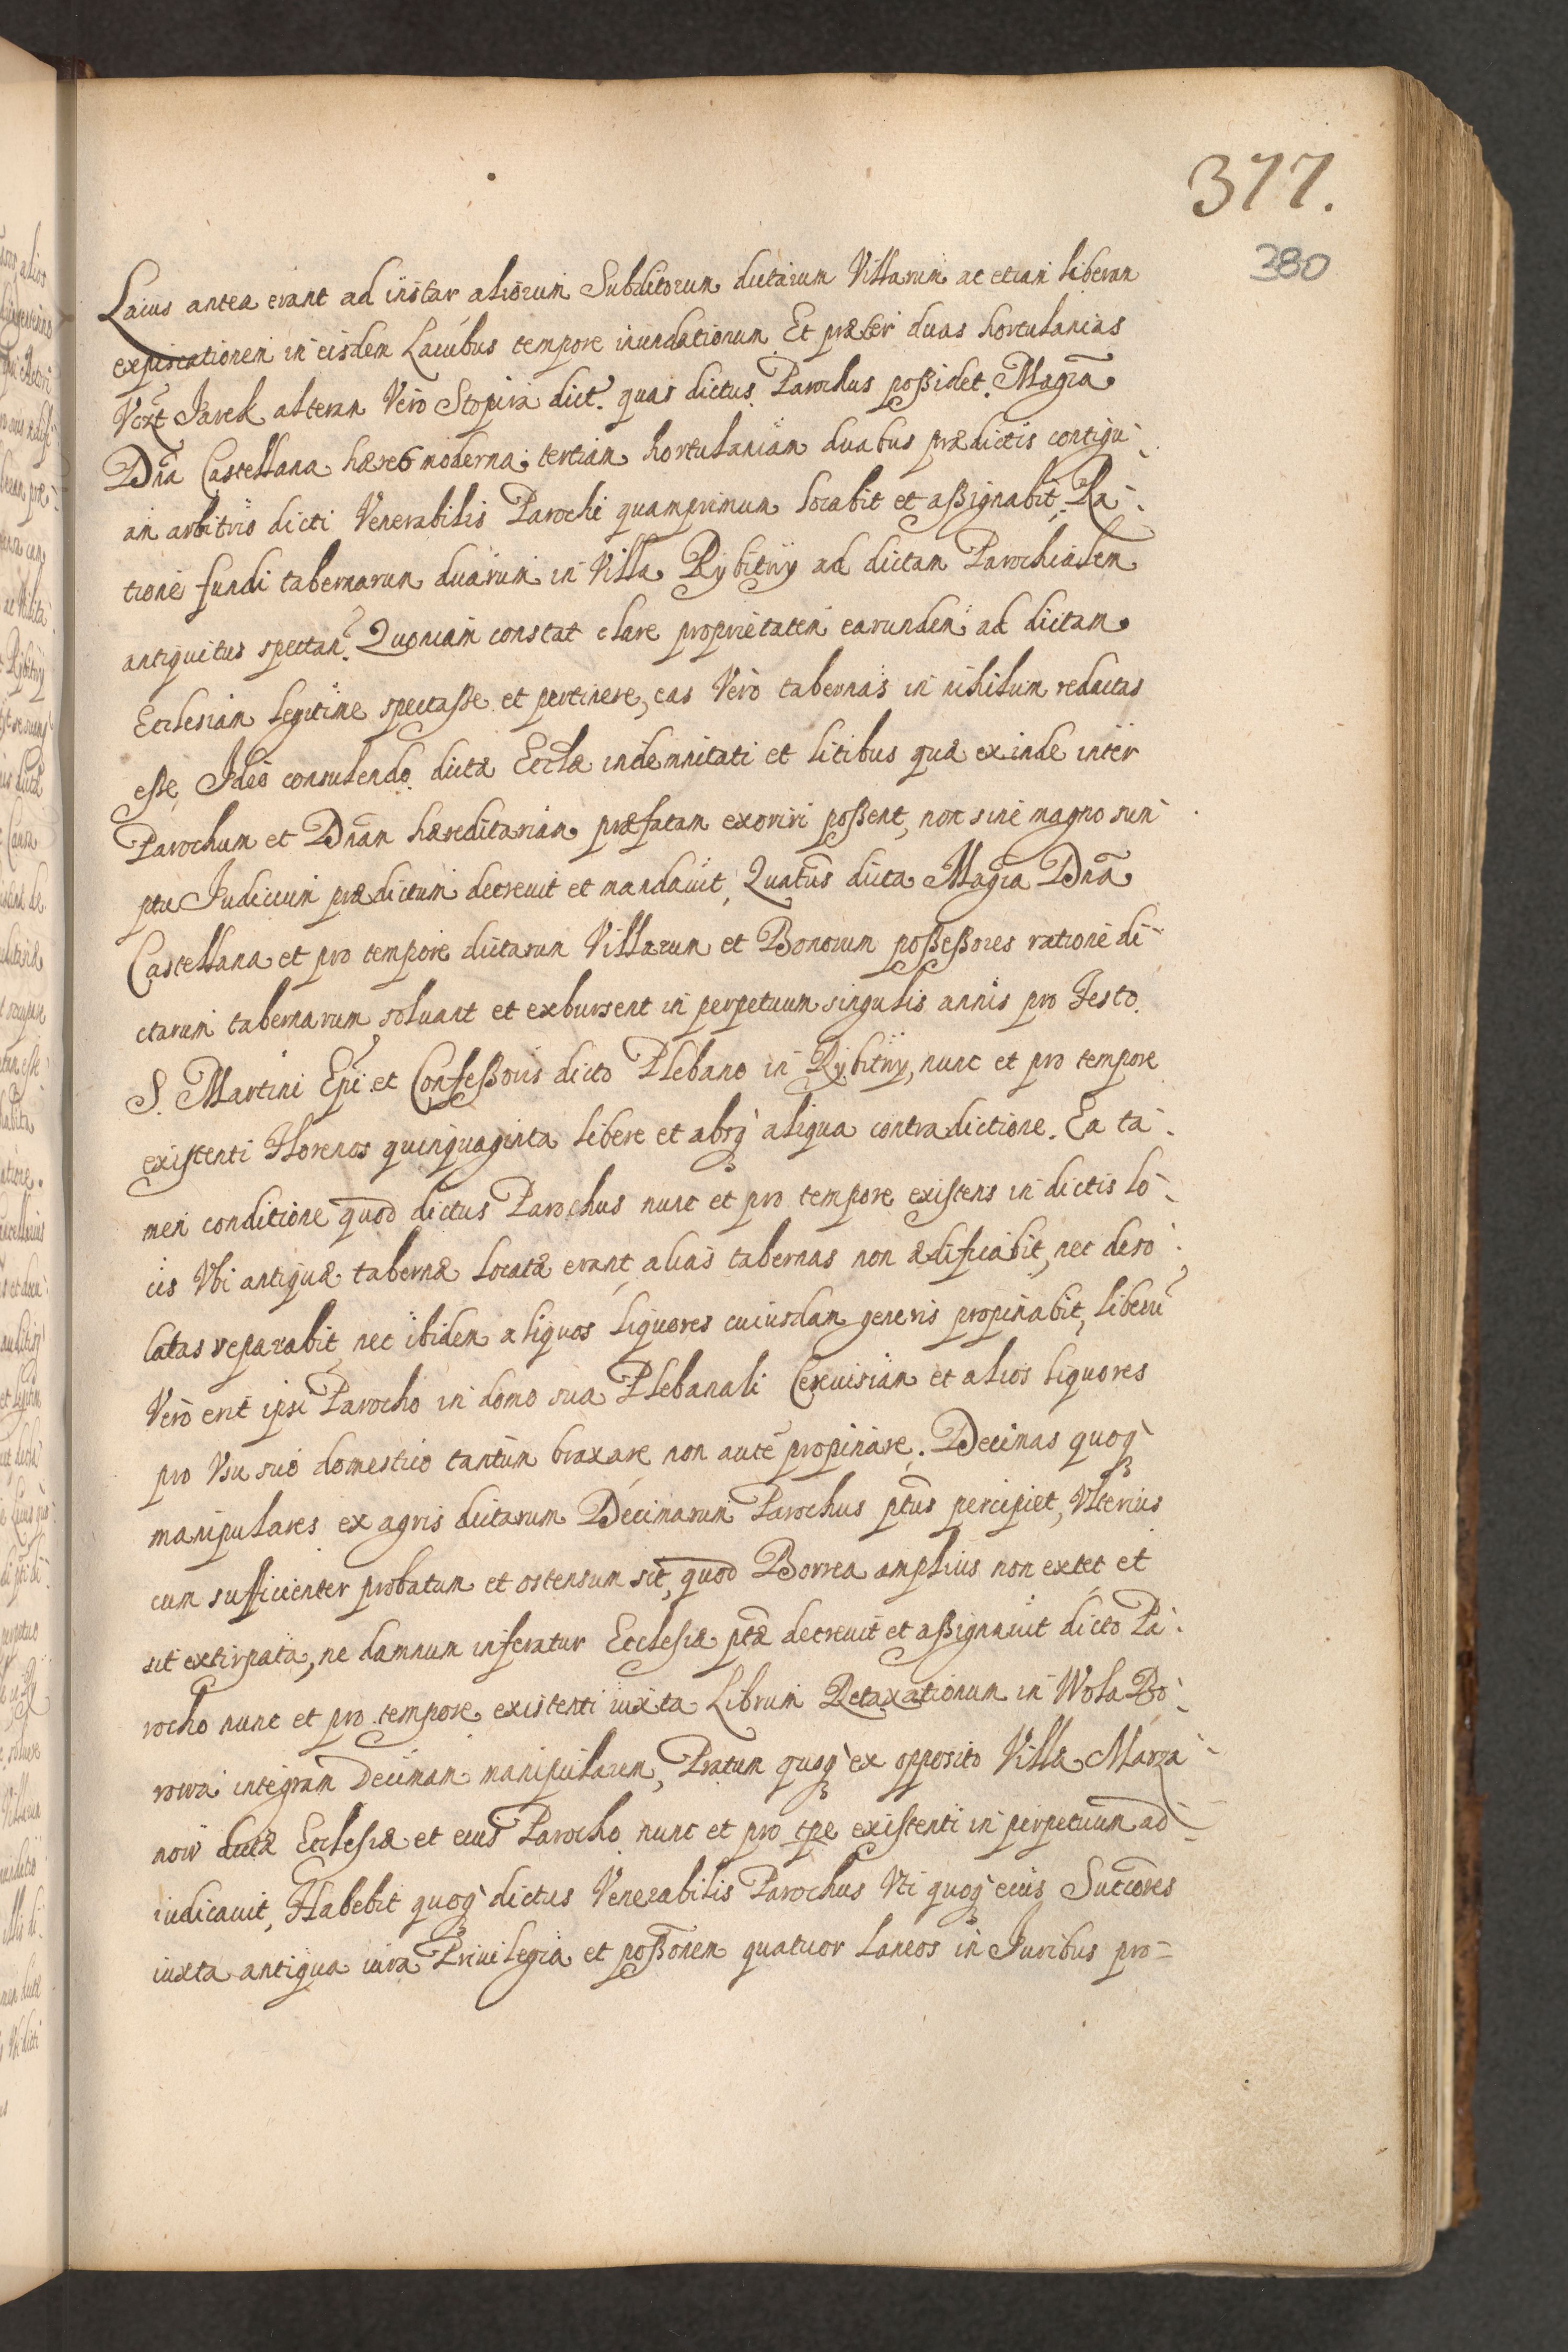 377.
380
Lacus antea erant ad instar aliorum Subditorum dictarum Villarum ac etiam liberam
expiscationem in eisdem Lacubus tempore inundationum Et præter duas hortulanias
Vezt Jarek alteram Vero Stopira dict. quas dictus Parochus poßidet. Magca
Dna Castellana hæres moderna tertiam hortulaniam duabus prædictis contigu-
am arbitrio dicti Venerabilis Parochi quamprimum locabit et aßignabit. Ra-
tione fundi tabernarum duarum in Villa Rybitwy ad dictam Parochialem
antiquitus spectan. Quoniam constat clare proprietatem earundem ad dictam
Ecclesiam legitime spectaße et pertinere, eas Vero tabernas in nihilum redactas
eße, Ideo consulendo dictæ Ecclæ indemnitati et litibus quæ exinde inter
Parochum et Dnam hæreditariam præfatam exoriri poßent, non sine magno sum-
ptu Judicium prædictum decrevit et mandauit, Quatus dicta Magca Dna
Castellana et pro tempore dictarum Villarum et Bonorum poßeßores ratione di-
ctarum tabernarum soluant et exbursent in perpetuum singulis annis pro Festo
S. Martini Epi et Confeßoris dicto Plebano in Rybitwy, nunc et pro tempore
existenti Florenos quinquaginta libere et absq aliqua contradictione. Ea ta-
men conditione quod dictus Parochus nunc et pro tempore existens in dictis lo-
cis Vbi antiquæ tabernæ locatæ erant, alias tabernas non ædificabit, nec deso-
latas reparabit, nec ibidem aliquos liquores cuiusdam generis propinabit, liberu
Vero erit ipsi Parocho in domo sua Plebanali Cereuisiam et alios liquores
pro Vsu suo domestico tantum braxare non aute propinare. Decimas quoq
manipulares ex agris dictarum Decimarum Parochus ptus percipiet, Vlterius
cum sufficienter probatum et ostensum sit, quod Borrea amplius non extet et
sit extirpata, ne damnum inferatur Ecclesiæ ptæ decreuit et aßignauit dicto Pa-
rocho nunc et pro tempore existenti iuxta Librum Retaxationum in Wola Bo-
rowa integram Decimam manipularem, Pratum quoq ex opposito Villæ Marza-
now dictæ Ecclesiæ et eius Parocho nunc et pro tpe existenti in perpetuum ad-
iudicauit, Habebit quoq dictus Venerabilis Parochus Vti quoq eius Succores
iuxta antiqua iura Priuilegia et poßonem quatuor laneos in Juribus pro=